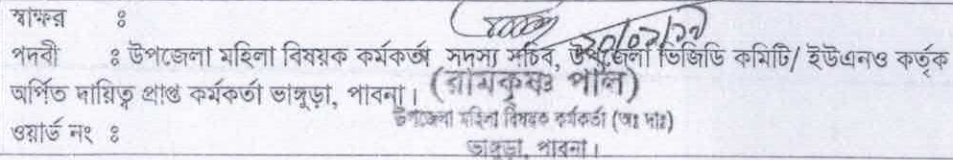 স্বাক্ষর ঃ
পদবী ঃ উপজেলা মহিলা বিষয়ক কর্মকর্তা সদস্য সচিব, উপজেলা ভিজিডি কমিটি/ ইউএনও কর্তৃক
অর্পিত দায়িত্ব প্রাপ্ত কর্মকর্তা ভাঙ্গুড়া, পাবনা।
(রামকৃষ্ণ পাল)
উপজেলা মহিলা বিষয়ক কর্মকর্তা (অঃ দাঃ)
ওয়ার্ড নং ঃ
ভাঙ্গুড়া, পাবনা।